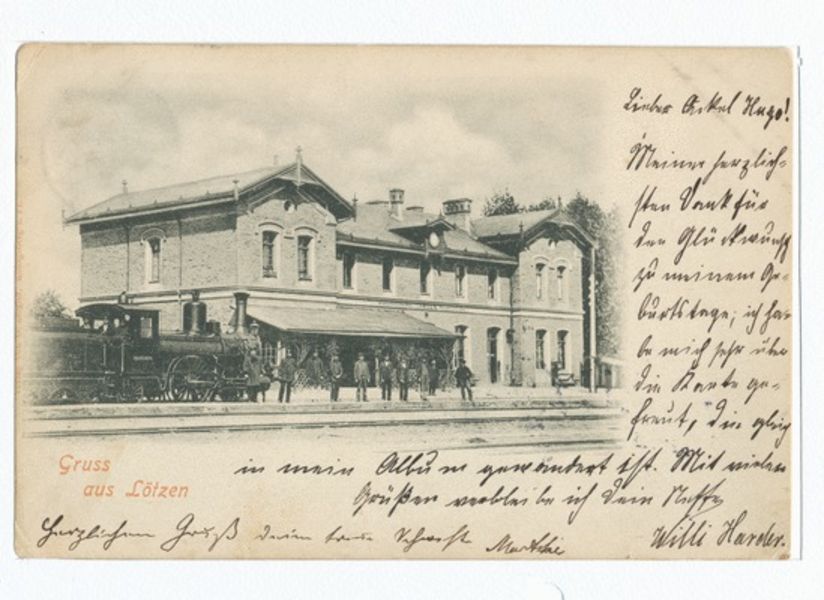 Lieber Onkel Hugo!
Meinen herzlich-
sten Dank für
den Glückwunsch
zu meinem Ge-
burtstage; ich ha-
be mich sehr über
die Karte ge-
freut, die gleich
in mein Album gewandert ist. Mit vielen
Grüßen verbleibe ich Dein Neffe
Willi Harder.
Gruss
aus Lötzen
Herzlichen Gruß